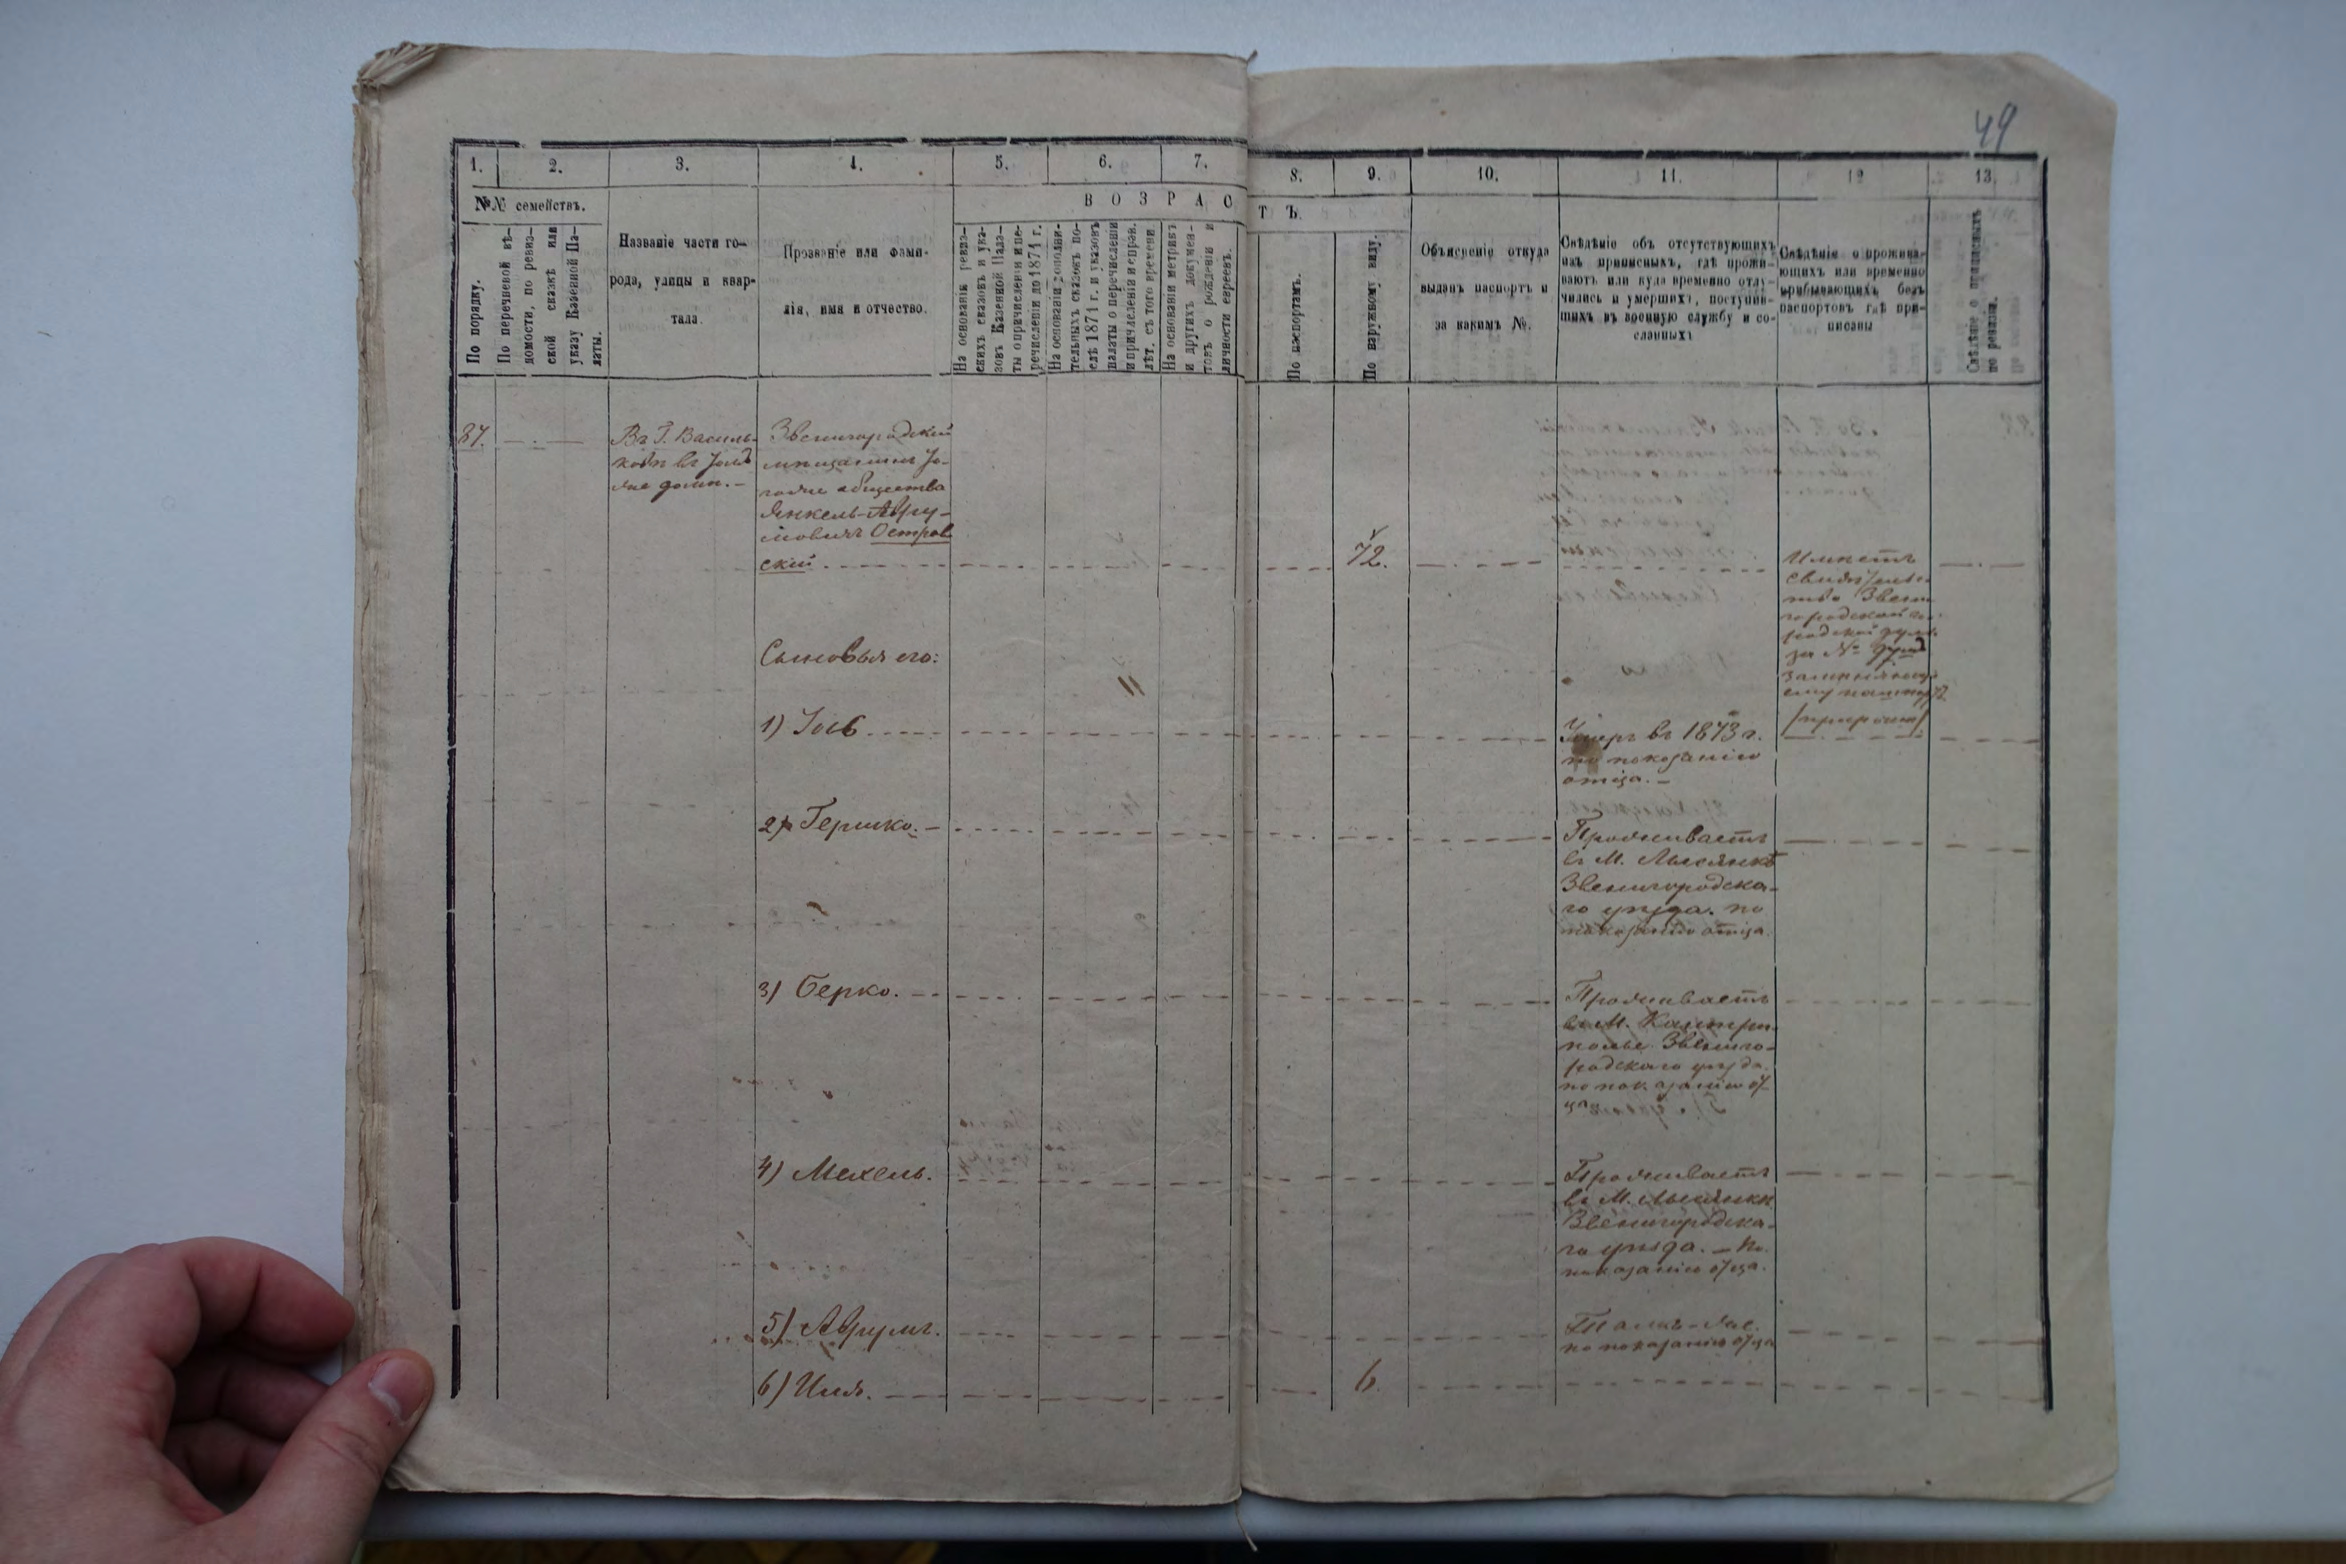 49
1. 2. 3. 4. 5. 6. 7. 8. 9. 10. 11. 12 13.
№№ семействъ.
В О З Р А С Т Ъ.
По порядку.
По перечневой вѣ-
домости, по ревиз-
ской сказкѣ или
указу Казенной Па-
латы.
Названіе части го-
рода, улицы и квар-
тала.
Прозваніе или фами-
лія, имя и отчество.
На основаніи ревиз-
скихъ сказокъ и ука-
зовъ Казенной Пала-
ты о причисленіи и пе-
речисленіи до 1871 г.
На основаніи дополни-
тельныхъ сказокъ по-
слѣ 1871 г. и указовъ
палаты о перечисленіи
и причисленіи и справ.
лѣт. съ того времени.
На основаніи метрикъ
и другихъ докумен-
товъ о рожденіи и
личности евреевъ.
По паспортамъ.
По наружному виду.
Объясненіе откуда
выданъ паспортъ и
за какимъ №.
Свѣдѣніе объ отсутствующихъ
изъ приписныхъ, гдѣ прожи-
ваютъ или куда временно отлу-
чились и умершихъ, поступив-
шихъ въ военную службу и со-
сланныхъ
Свѣдѣніе о прожива-
ющихъ или временно
прибывающихъ безъ
паспортовъ гдѣ при-
писаны
Свѣдѣніе о приписныхъ
по ревизіи.
87.
Въ Г. Василь-
ковѣ въ
домѣ.
Звенигородскій
мѣщанинъ
общества
Янкель-Авру-
мовичъ Остров
скій
72.
Имѣетъ
Звени
городской го
родской
за №
Сыновья его:
1) Іось
Умеръ въ 1873 г.
по показанію
отца.
2) Гершко.
Проживаетъ
въ М. Лысянкѣ
Звенигородска-
го уѣзда. по
показанію отца.
3) Берко.
Проживаетъ
въ М.
Звениго-
родскаго уѣзда
по показанію от-
ца
4) Мехель.
Проживаетъ
въ М. Лысянкѣ
Звенигородска-
го уѣзда. По
показанію отца.
5) Аврумъ.
Тамъ-же.
по показанію отца
6)
6.